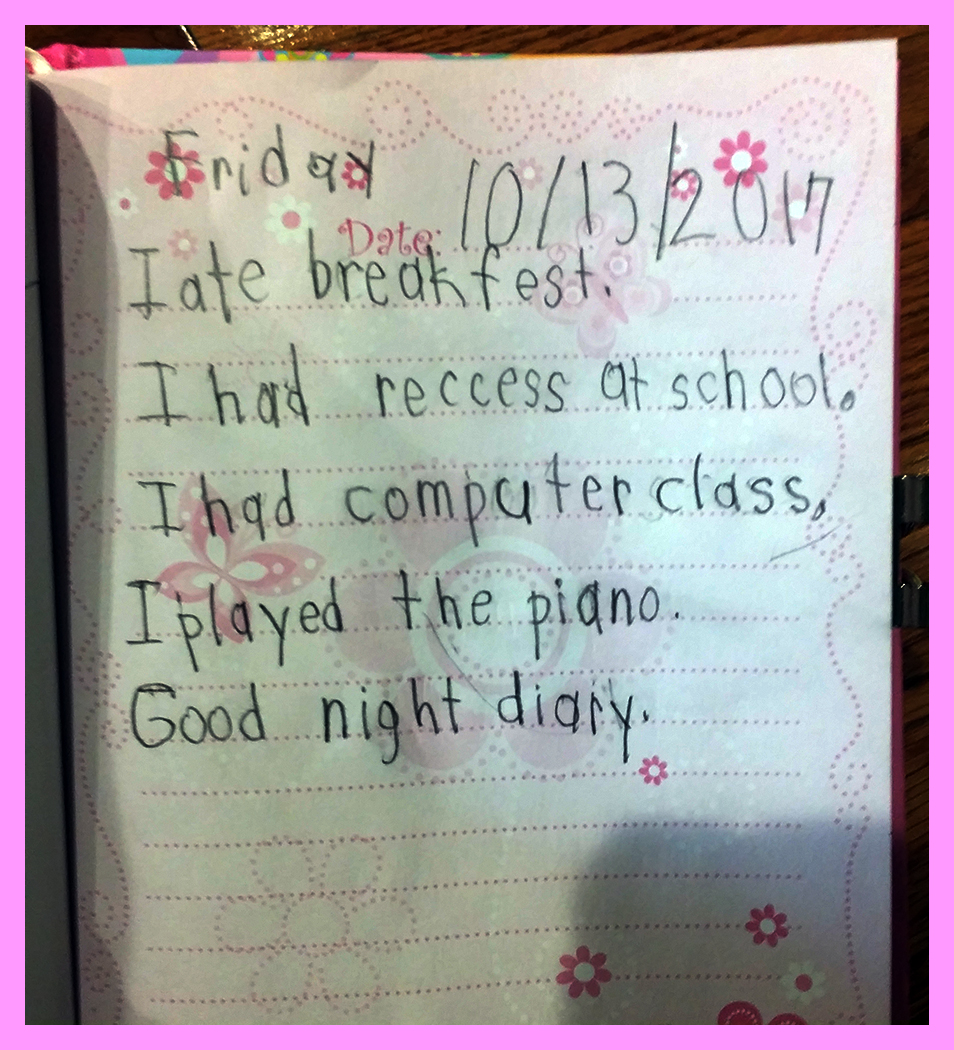 Friday
Date: 10/13/2017
I ate breakfest.
I had reccess at school.
I had computer class.
I played the piano.
Good night diary.